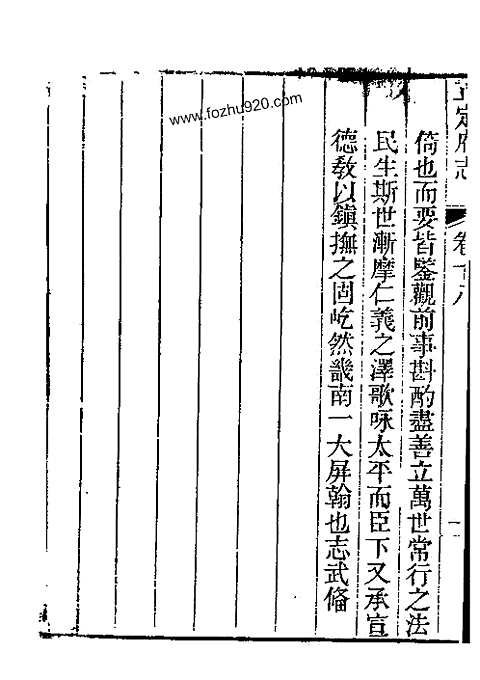 正定府志
卷十八
倚也而要皆鑒觀前事斟酌盡善立萬世常行之法
民生斯世漸摩仁義之澤歌咏太平而臣下又承宣
德教以鎮撫之固屹然畿南一大屏翰也志武俻
www.fozhu920.com